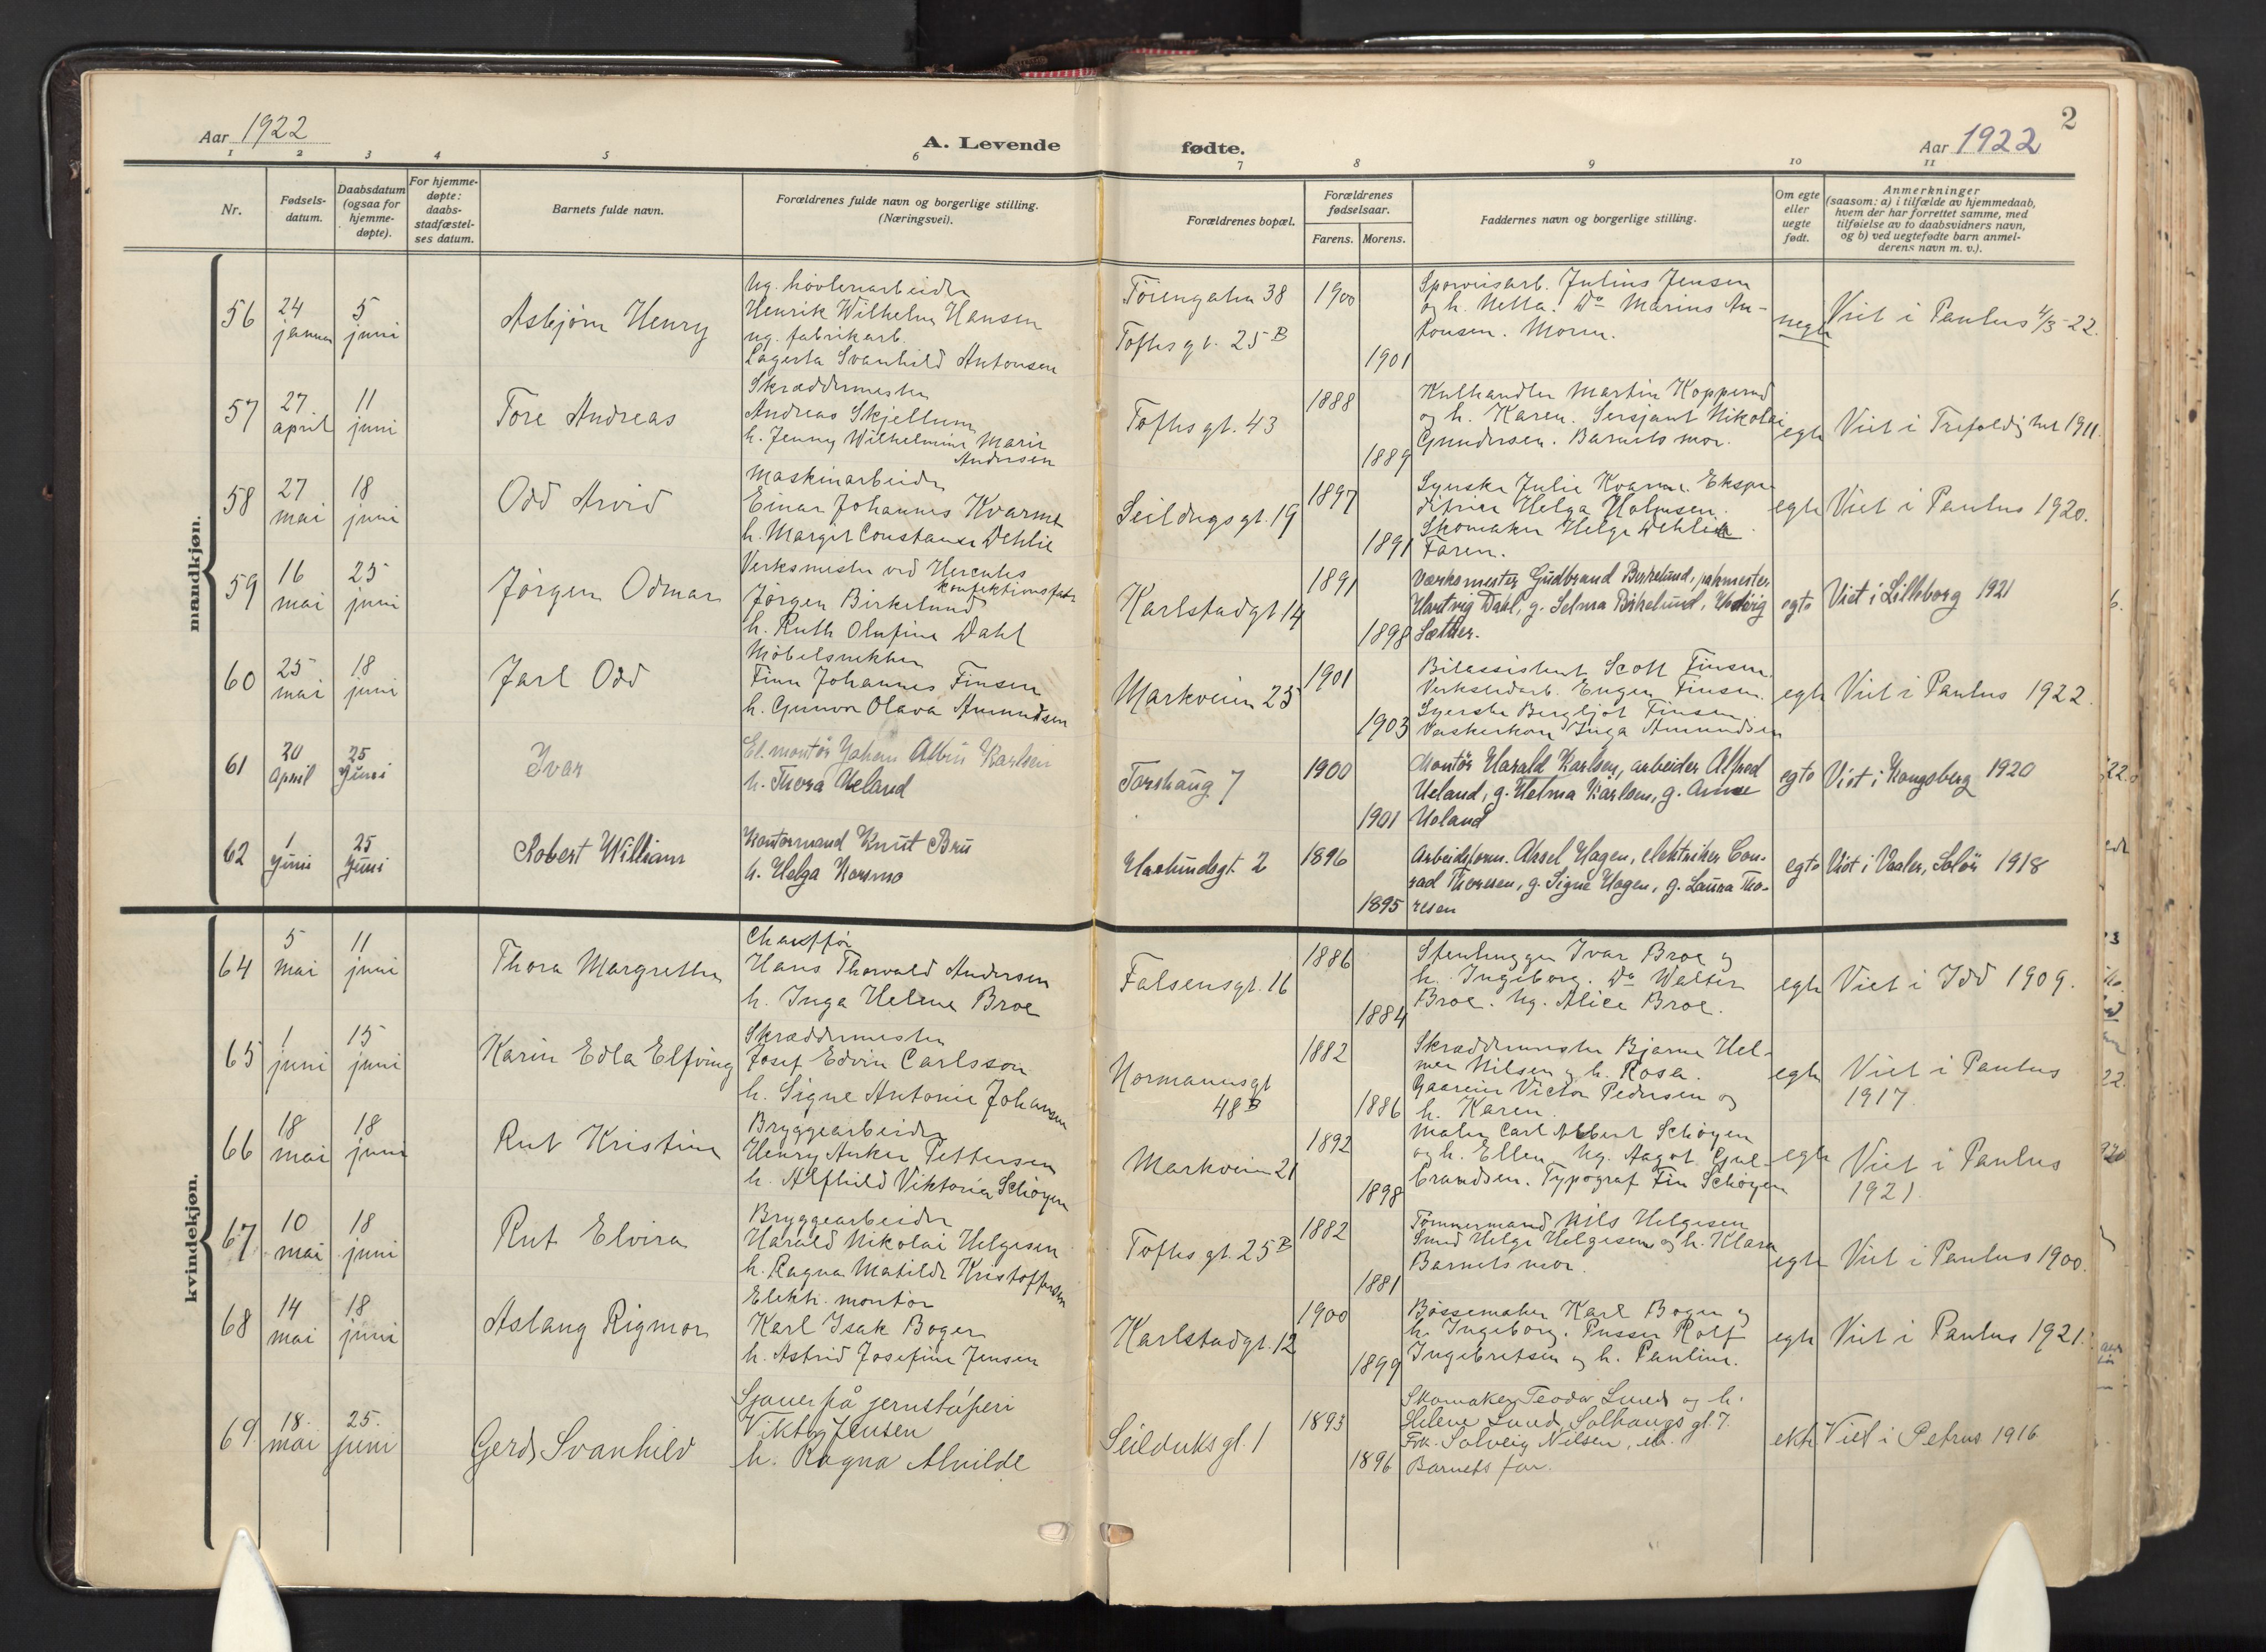 Aar 1922
A. Levende
fødte.
Aar 1922
2
1 2 3 4 5 6 7 8 9 10 11
Nr.
Fødsels-
datum.
Daabsdatum
(ogsaa for
hjemme-
døpte).
For hjemme-
døpte:
daabs-
stadfæstel-
ses datum.
Barnets fulde navn.
Forældrenes fulde navn og borgerlige stilling.
(Næringsvei).
Forældrenes bopæl.
Forældrenes
fødselsaar.
Farens. Morens.
Faddernes navn og borgerlige stilling.
Om egte
eller
uegte
født.
Anmerkninger
(saasom: a) i tilfælde av hjemmedaab,
hvem der har forrettet samme, med
tilføielse av to daabsvidners navn,
og b) ved uegtefødte barn anmel-
derens navn m. v.).
mandkjøn.
56
24
januar
5
juni
Asbjørn Henry
Ug. høvleriarbeider
Henrik Wilhelm Hansen
ug. fabrikarb.
Lagerta Svanhild Antonsen
Töiengaten 38
Toftes gt. 25 B
1900
1901
Sporveisarb. Julius Jensen
og h. Netta. Do Marius An-
tonsen. Moren.
uegte
Viet i Paulus 4/3-22.
57
27
april
11
juni
Tore Andreas
Skræddermester
Andreas Skjellum
h. Jenny Wilhelmine Marie
Andersen
Toftes gt. 43
1888
1889
Kulhandler Martin Kopperud
og h. Karen. Sersjant Nikolai
Gundersen. Barnets mor.
egte
Viet i Trefoldighet 1911.
58
27
mai
18
juni
Odd Arvid
Maskinarbeider
Einar Johannes Kvarme
h. Margit Constanse Dehlie
Seildugsgt. 19
1897
1891
Syerske Julie Kvarme. Ekspe-
ditrice Helga Holmsen.
Skomaker Helge Dehlie.
Faren.
egte
Viet i Paulus 1920.
59
16
mai
25
juni
Jørgen Odmar
Verksmester ved Hercules
konfektionsfabr
Jørgen Birkelund
h. Ruth Olufine Dahl
Karlstadgt 14
1891
1898
Værksmester Gudbrand Birkelund,
Hartvig Dahl, g. Selma Birkelund,
Sæther.
egte
Viet i Lilleborg 1921
60
25
mai
18
juni
Jarl Odd
Møbelsnekker
Finn Johannes Finsen
h. Gunvor Olava Amundsen
Markveien 23
1901
1903
Bilassistent Scott Finsen.
Verkstedarb. Eugen Finsen.
Syerske Bergljot Finsen.
Vaskerkone Inga Amundsen
egte
Viet i Paulus 1922.
61
20
April
25
Juni
Ivar
El. montør Johan Albin Karlsen
h. Thora Ueland
Torshaug 7
1900
1901
Montør Harald Karlsen, arbeider Alfred
Ueland, g. Helma Karlsen, g. Anne
Ueland
egte
Viet i Kongsberg 1920
62
1
Juni
25
Juni
Robert William
Kontormand Knut Bru
h. Helga Korsmo
Haslundsgt. 2
1896
1895
Arbeidsform. Aksel Hagen, elektriker Con-
rad Thoresen, g. Signe Hagen, g. Laura Tho-
resen
egte
Viet i Vaaler, Solør 1918
kvindekjøn.
64
5
mai
11
juni
Thora Margrethe
Chauffør
Hans Thorvald Andersen
h. Inga Helene Broe
Falsensgt. 16
1886
1884
Stenhugger Ivar Broe og
h. Ingeborg. Do Walter
Broe. Ug. Alice Broe.
egte
Viet i Idd 1909.
65
1
juni
15
juni
Karin Edla Elfving
Skræddermester
Josef Edvin Carlsson
h. Signe Antonie Johansen
Normannsgt
48 B
1882
1886
Skræddermester Bjarne Hel-
mer Nilsen og h. Rosa.
Victor Pedersen og
h. Karen.
egte
Viet i Paulus
1917.
66
18
mai
18
juni
Rut Kristine
Bryggearbeider
Henry Anker Pettersen
h. Alfhild Viktoria Schøyen
Markveien 21
1892
1898
Maler Carl Albert Schøyen
og h. Ellen. Ug. Aagot Gul-
brandsen. Typograf Fin Schøyen
egte
Viet i Paulus
1921.
67
10
mai
18
juni
Rut Elvira
Bryggearbeider
Harald Nikolai Helgesen
h. Ragna Matilde Kristoffersen
Toftes gt. 25 B
1882
1881
Tømmermand Nils Helgesen
Smed Helge Helgesen og h. Klara
Barnets mor.
egte
Viet i Paulus 1900.
68
14
mai
18
juni
Aslaug Rigmor
Elektr. montør
Karl Isak Boger
h. Astrid Josefine Jensen
Karlstadgt. 12
1900
1899
Bøssemaker Karl Boger og
h. Ingeborg. Pusser Rolf
Ingebretsen og h. Pauline.
egte
Viet i Paulus 1921.
69.
18.
mai
25.
juni
Gerd Svanhild
Sjauer på jernstøperi
Viktor Jensen
h. Ragna Alvilde
Seilduksgt. 1
1893
1896
Skomaker Teodor Lund og h.
Helene Lund, Solhaugsgt. 7.
Frk. Solveig Nilsen, ib.
Barnets far.
ekte
Viet i Petrus 1916